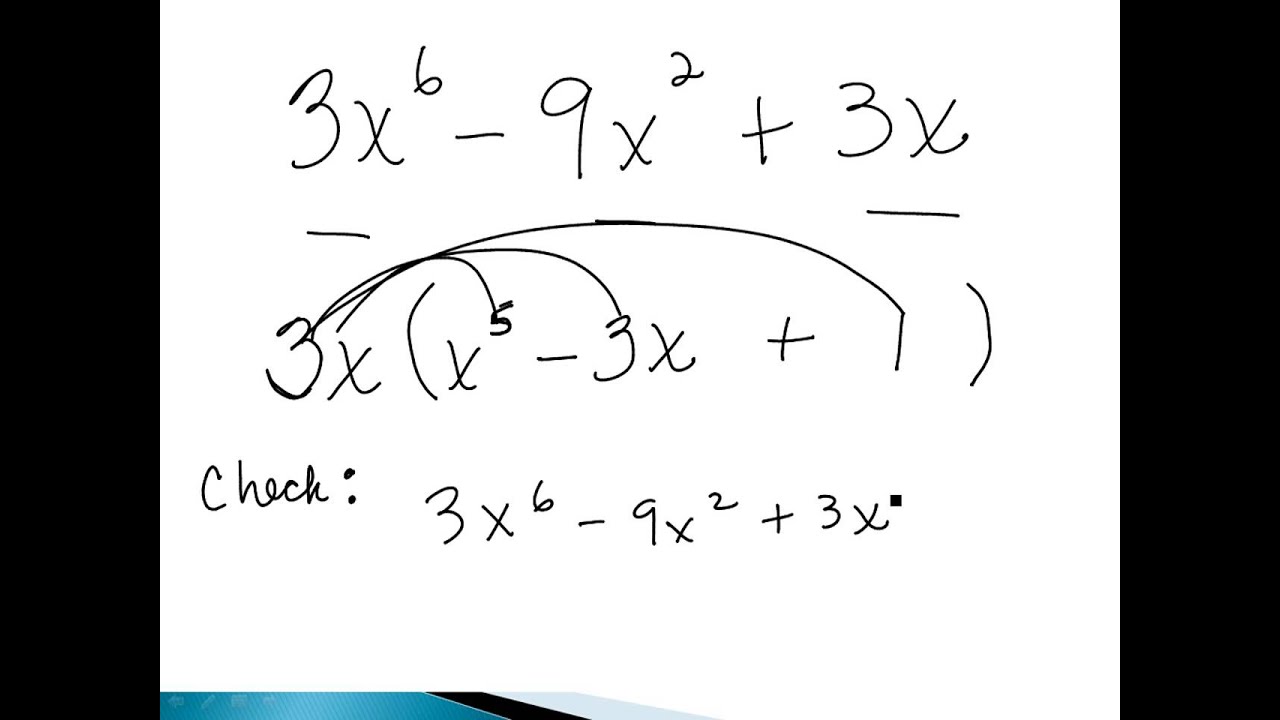 3x⁶ - 9x² + 3x
3x(x⁵ - 3x + 1)
Check: 3x⁶ - 9x² + 3x